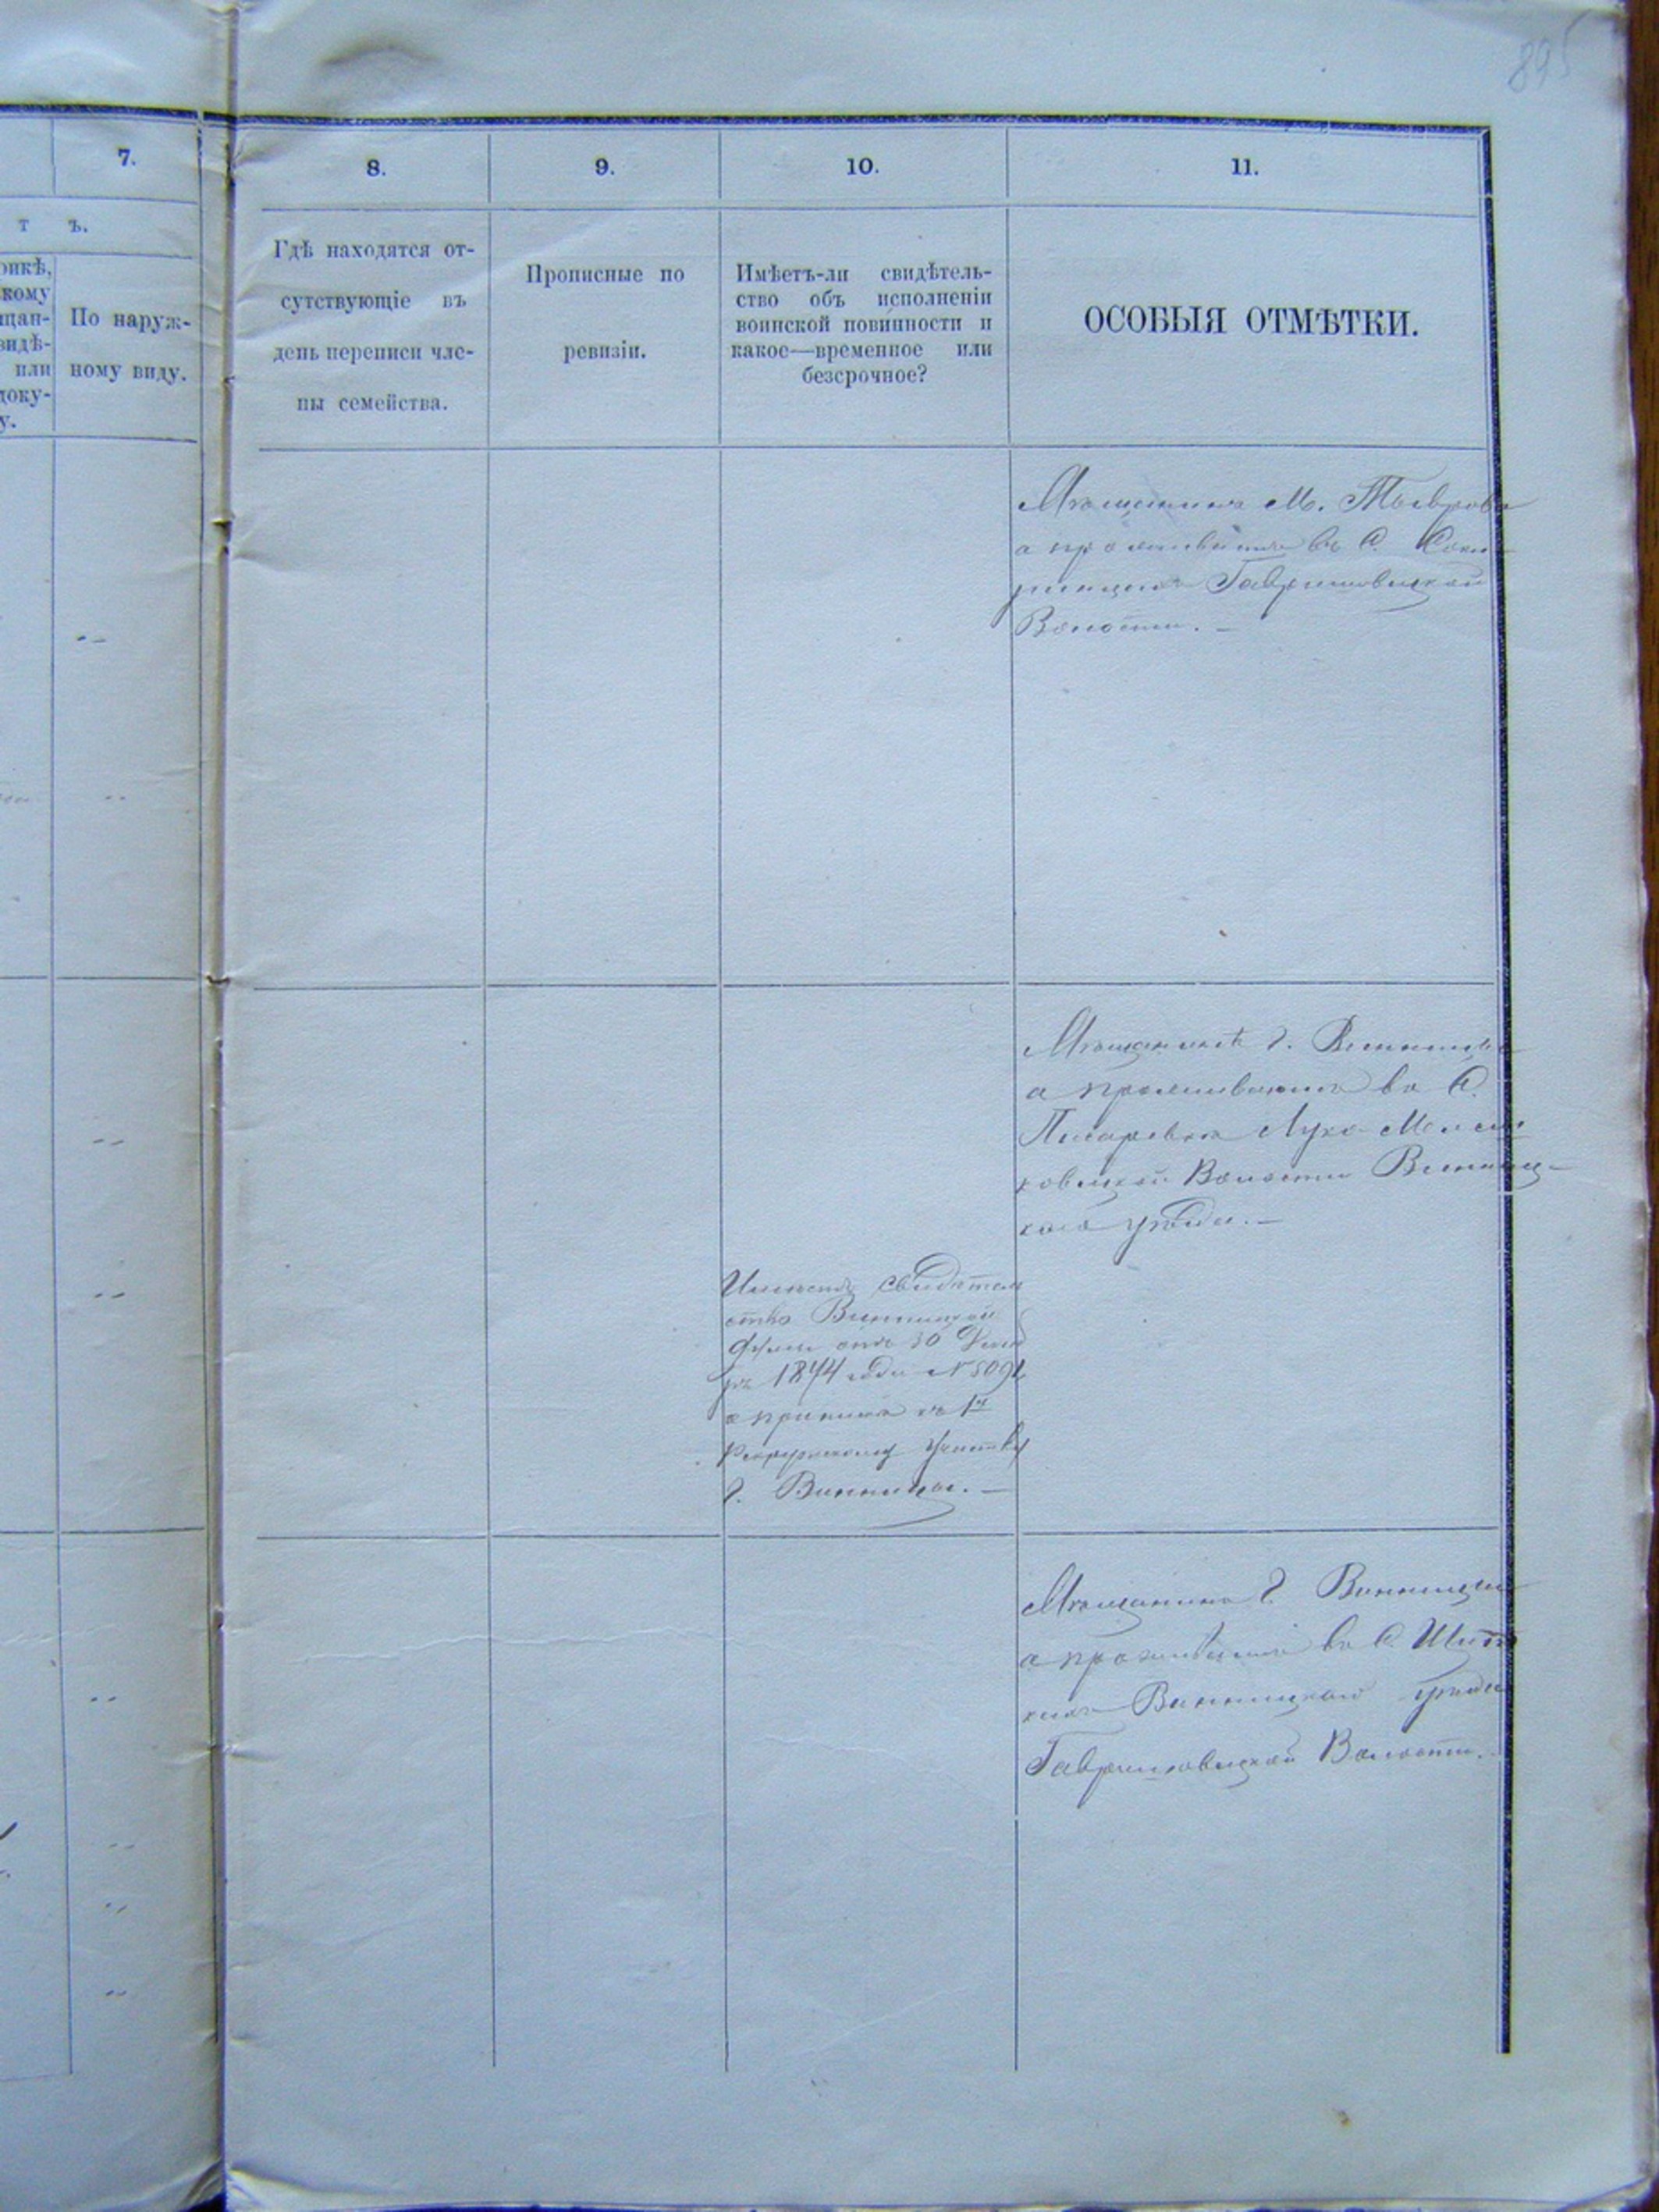 875
7.
8.
9.
10.
11.
т ъ.
рикѣ,
кому
щан-
видѣ-
или
доку-
у.
По наруж-
ному виду.
Гдѣ находятся от-
сутствующіе въ
день переписи чле-
ны семейства.
Прописные по
ревизіи.
Имѣетъ-ли свидѣтель-
ство объ исполненіи
воинской повинности и
какое—временное или
безсрочное?
ОСОБЫЯ ОТМѢТКИ.
Мѣщанинъ М. Тыврова
а проживаетъ въ С. Соки-
ринцахъ Гавришовецкой
Волости. —
Мѣщанинъ г. Винницы
а проживаетъ въ С.
Писаревка Лука Мелеш-
ковецкой Волости Винниц-
каго уѣзда. —
Имѣетъ свидѣтель
ство Винницкой
Думы отъ 30 Декаб
ря 1874 года № 5091
о припискѣ къ 1й
Рекрутскому Участку
г. Винницы. —
Мѣщанинъ г. Винницы
а проживаетъ въ С. Щит
кахъ Винницкаго уѣзда
Гавришовецкой Волости.